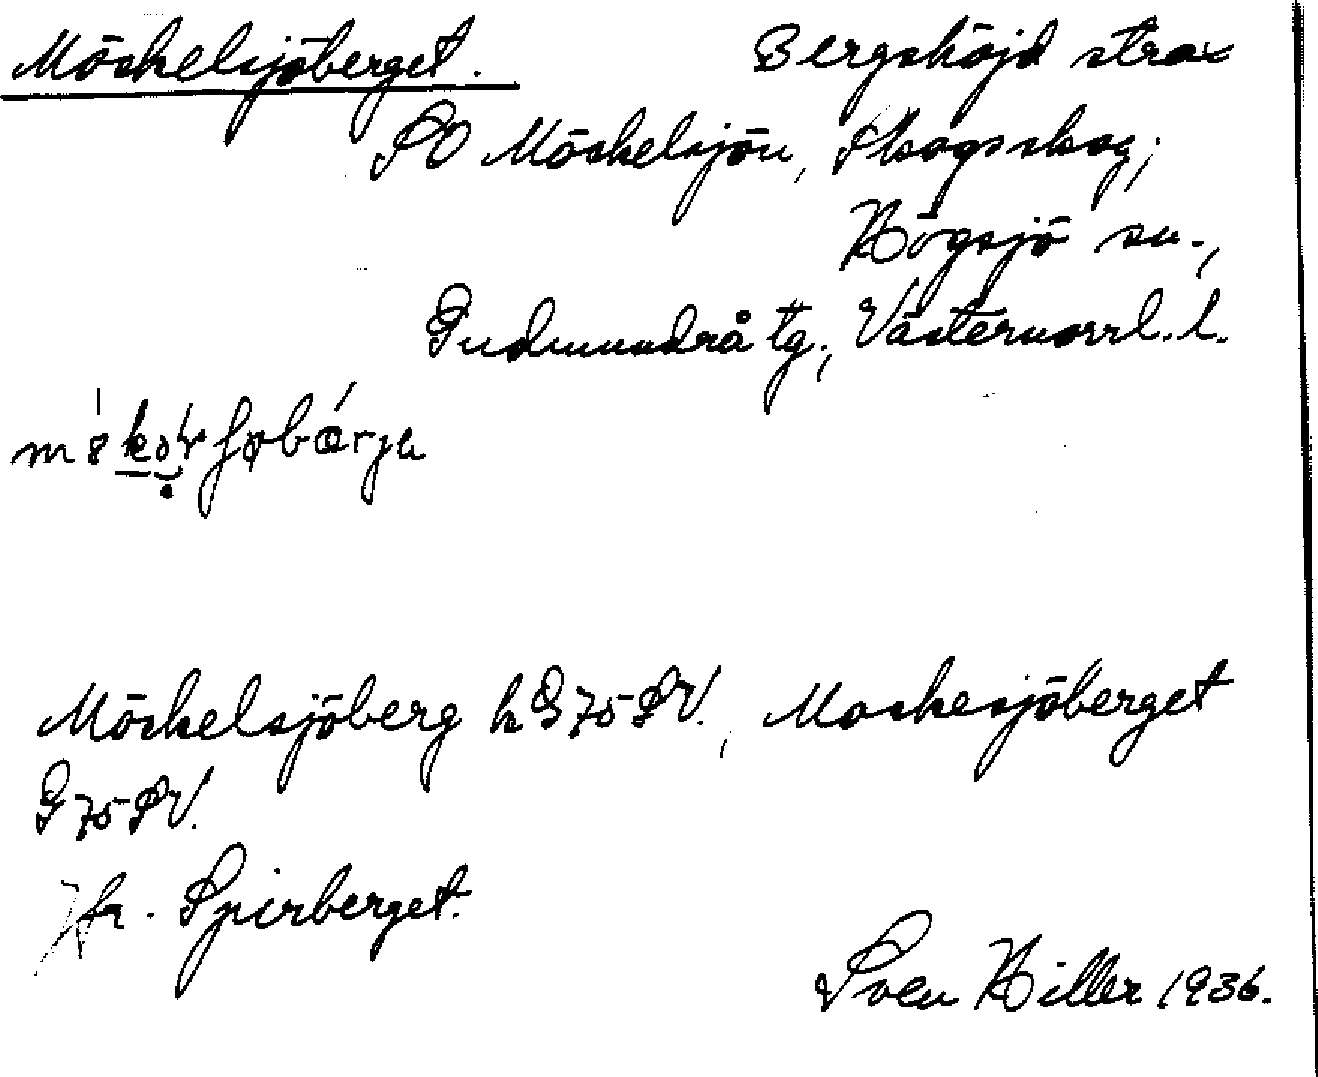 Möskelsjöberget. Bergshöjd strax
SO Möskelsjön, Skogsskog;
Högsjö sn.,
Gudmundrå tg., Västernorrl. l.
Möskelsjöberg h G 75 SV., Moskesjöberget
G 75 SV.
Jfr. Spirberget.
Sven Hiller 1936.